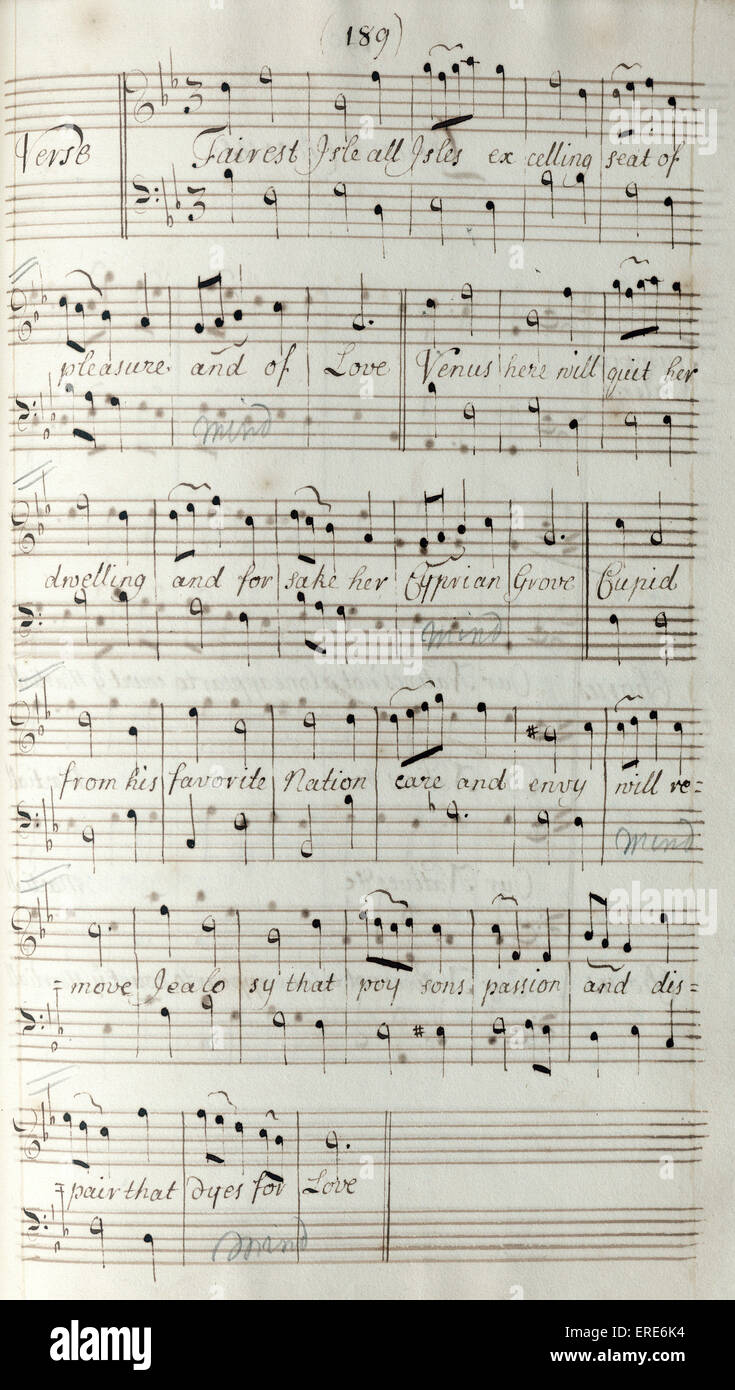 (189)
Verse Fairest Isle all Isles ex celling seat of
pleasure and of Love Venus here will quit her
mind
dwelling and for sake her Cyprian Grove Cupid
mind
from his favorite Nation care and envy will re=
mind
=move Jealo sy that poy sons passion and dis=
=pair that dyes for Love
mind
alamy stock photo
ERE6K4
www.alamy.com